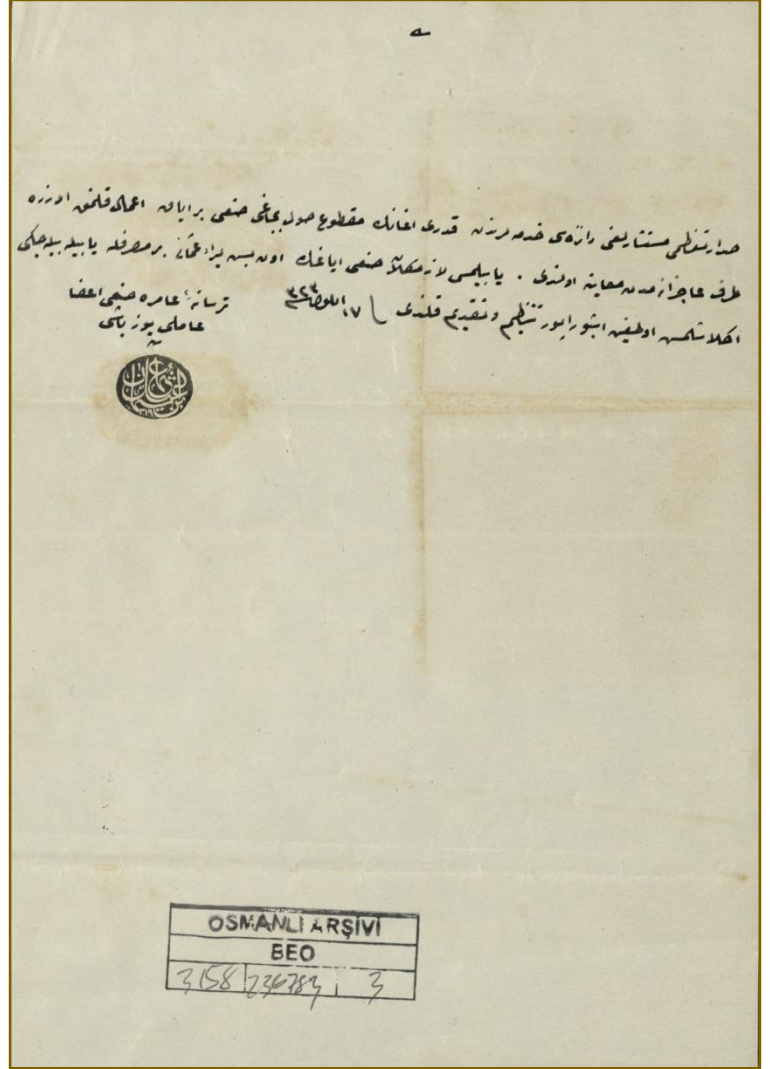 صدارتعظمی مستشارلغی دائره‌سی خدمه‌سندن قدری اغانك مقطوع صول بجاغی صنعی بر ایاق اعمال قلنمق اوزره
طرف عاجزانه‌مدن معاینه اولندی . یاپیلمسی لازمکلان صنعی ایاغك اون بش لیرا عثمانی بر مصرفله یاپیله بیله‌جکی
اکلاشلمش اولمغین اشبو راپور تنظیم و تقدیم قلندی ١٧ ایلول ٣٢٣
ترسانهٔ عامره صنعی اعضا
عاملی یوزباشی
OSMANLI ARŞİVİ
BEO
3158 236783 3